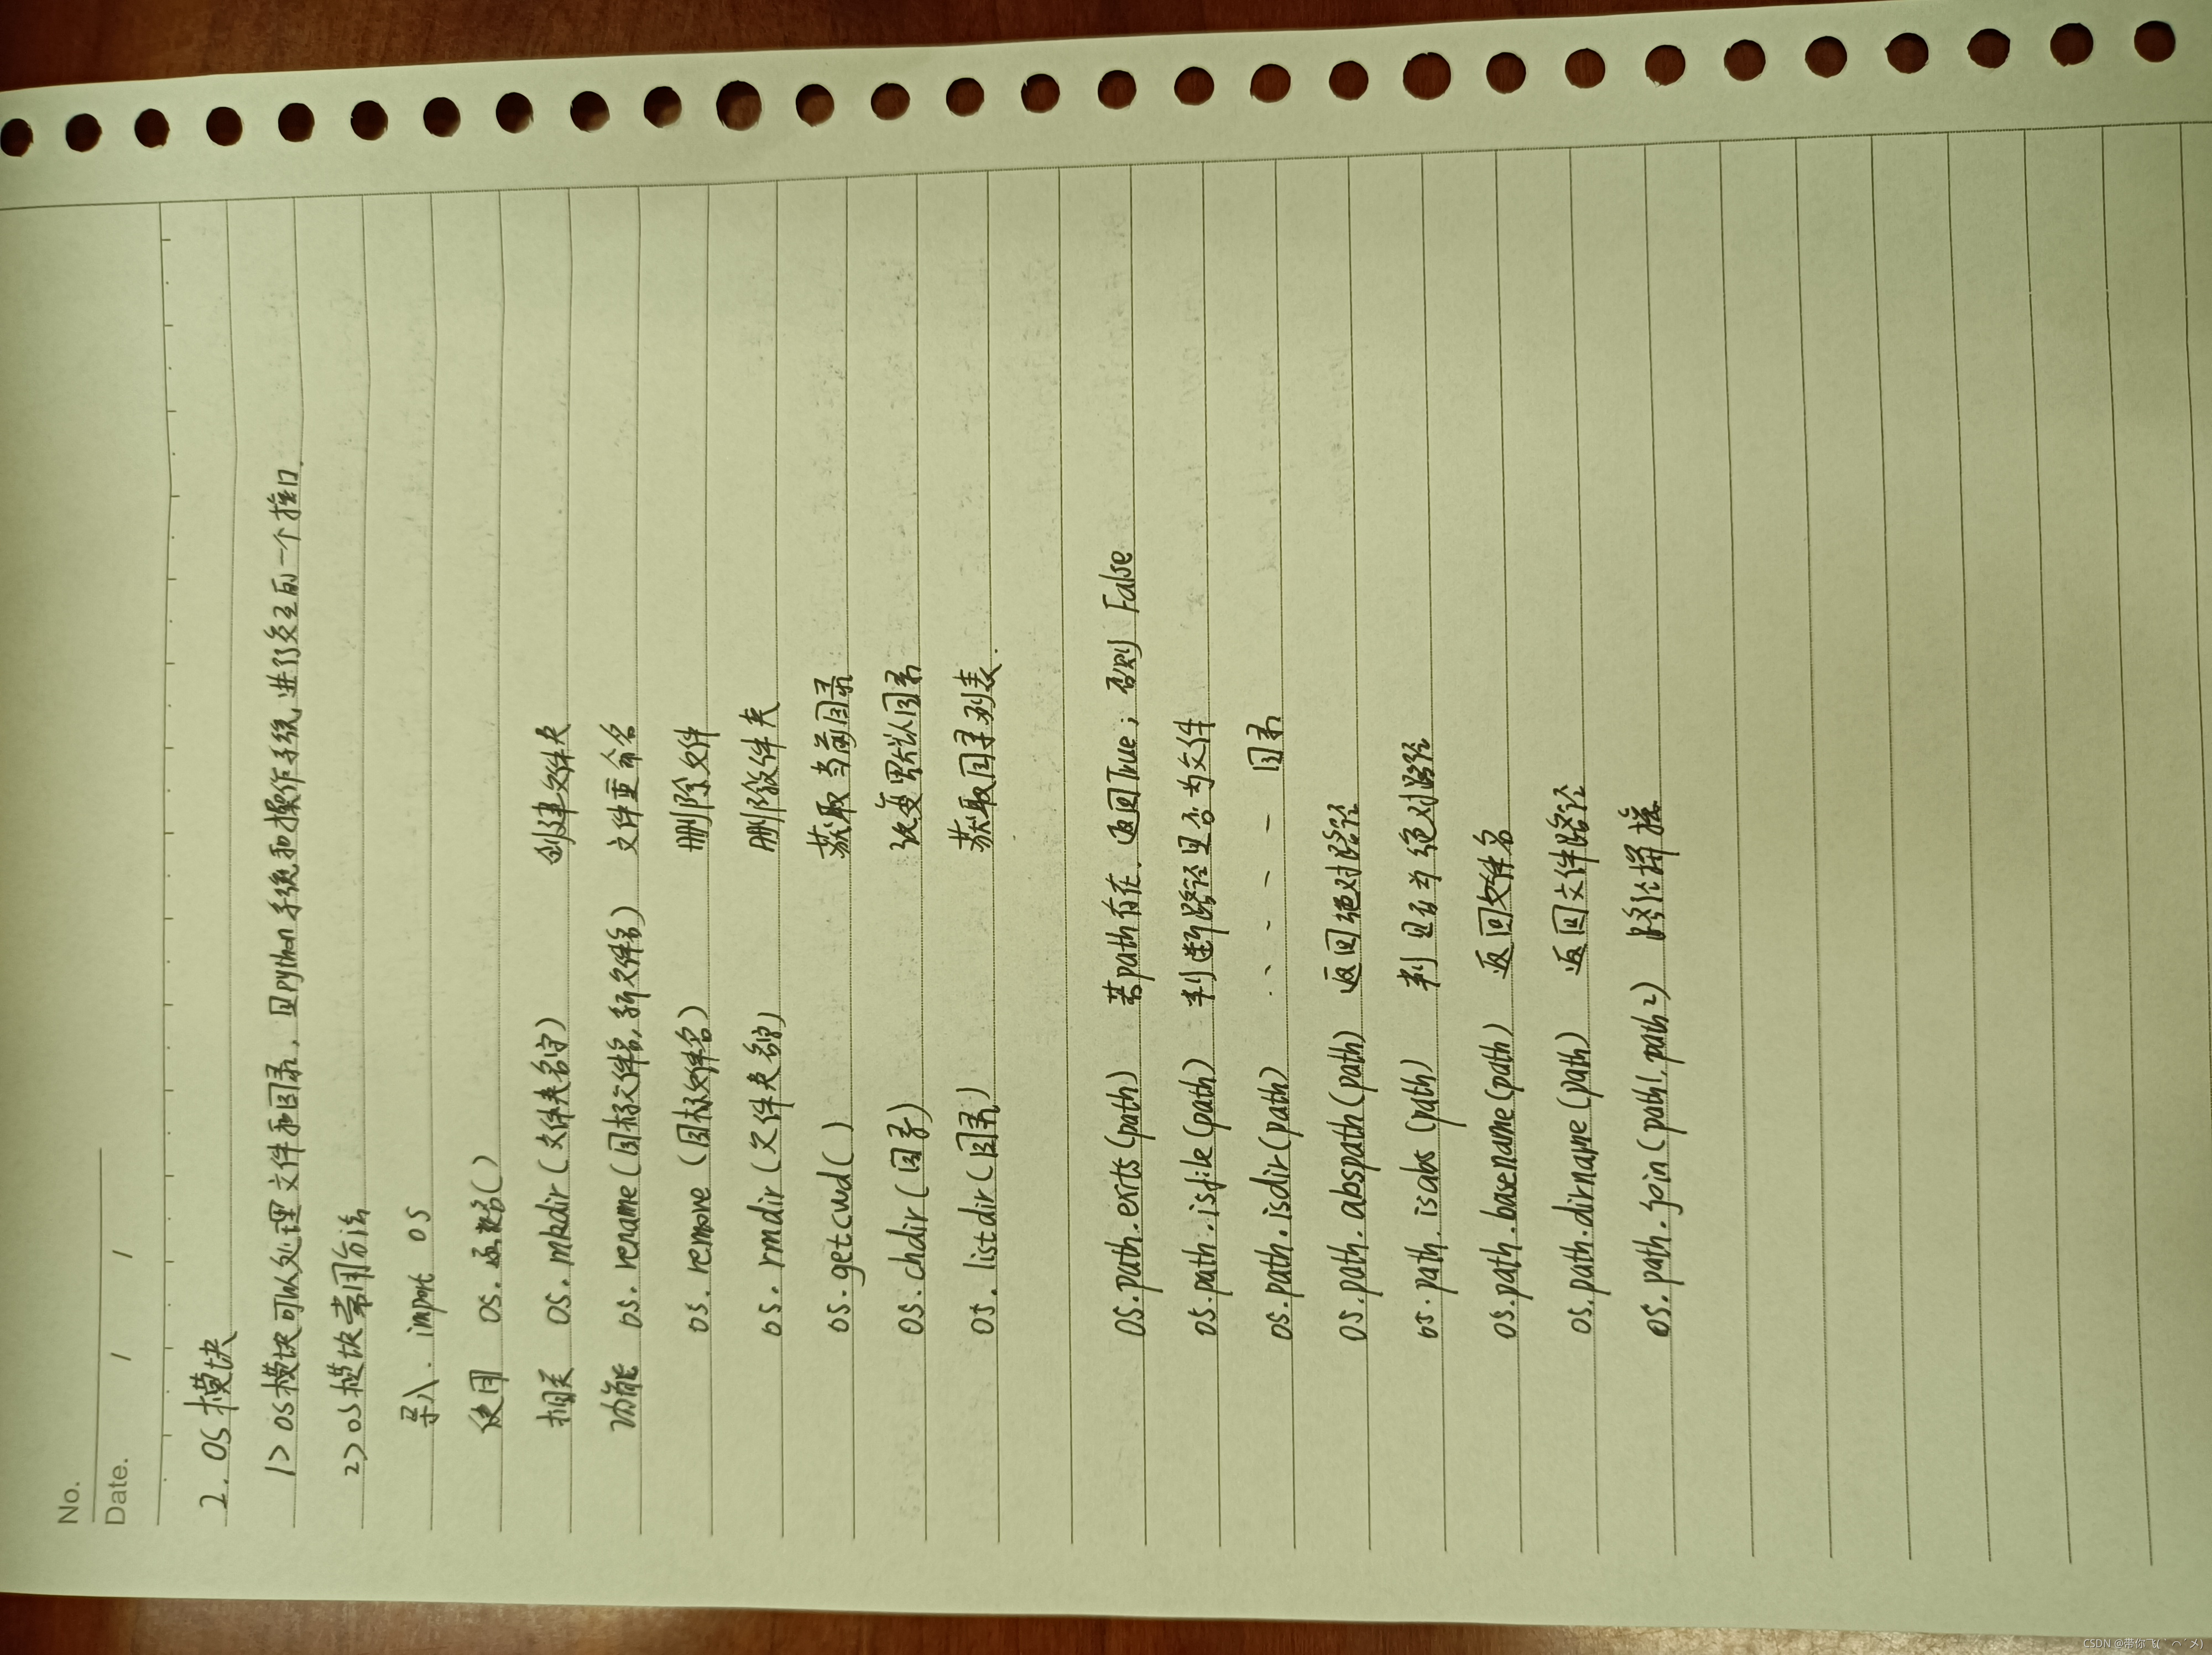 No.
Date. / /
2. OS模块
1> OS模块可以处理文件和目录, 是python系统和操作系统进行交互的一个接口.
2> OS模块常用方法
导入. import os
使用 os.函数名()
相关 os.mkdir(文件夹名字) 创建文件夹
功能 os.rename(目标文件名, 新文件名) 文件重命名
os.remove(目标文件名) 删除文件
os.rmdir(文件夹名字) 删除文件夹
os.getcwd() 获取当前目录
os.chdir(目录) 改变默认目录
os.listdir(目录) 获取目录列表.
os.path.exits(path) 若path存在, 返回True; 否则 False
os.path.isfile(path) 判断路径是否为文件
os.path.isdir(path) 目录
os.path.abspath(path) 返回绝对路径
os.path.isabs(path) 判是否为绝对路径
os.path.basename(path) 返回文件名
os.path.dirname(path) 返回文件路径
os.path.join(path1, path2) 路径拼接
CSDN @带你飞